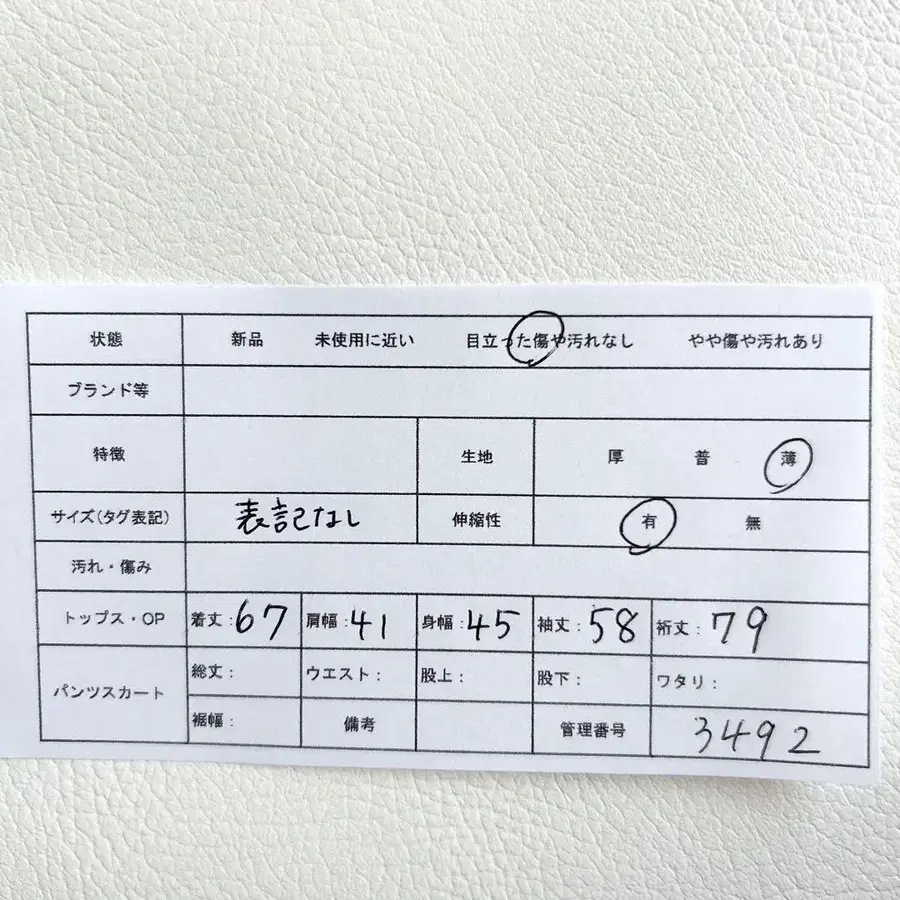 状態 新品 未使用に近い 目立った傷や汚れなし やや傷や汚れあり
ブランド等
特徴 生地 厚 普 薄
サイズ(タグ表記) 表記なし 伸縮性 有 無
汚れ・傷み
トップス・OP 着丈:67 肩幅:41 身幅:45 袖丈:58 裄丈:79
パンツスカート 総丈: ウエスト: 股上: 股下: ワタリ:
裾幅: 備考 管理番号 3492